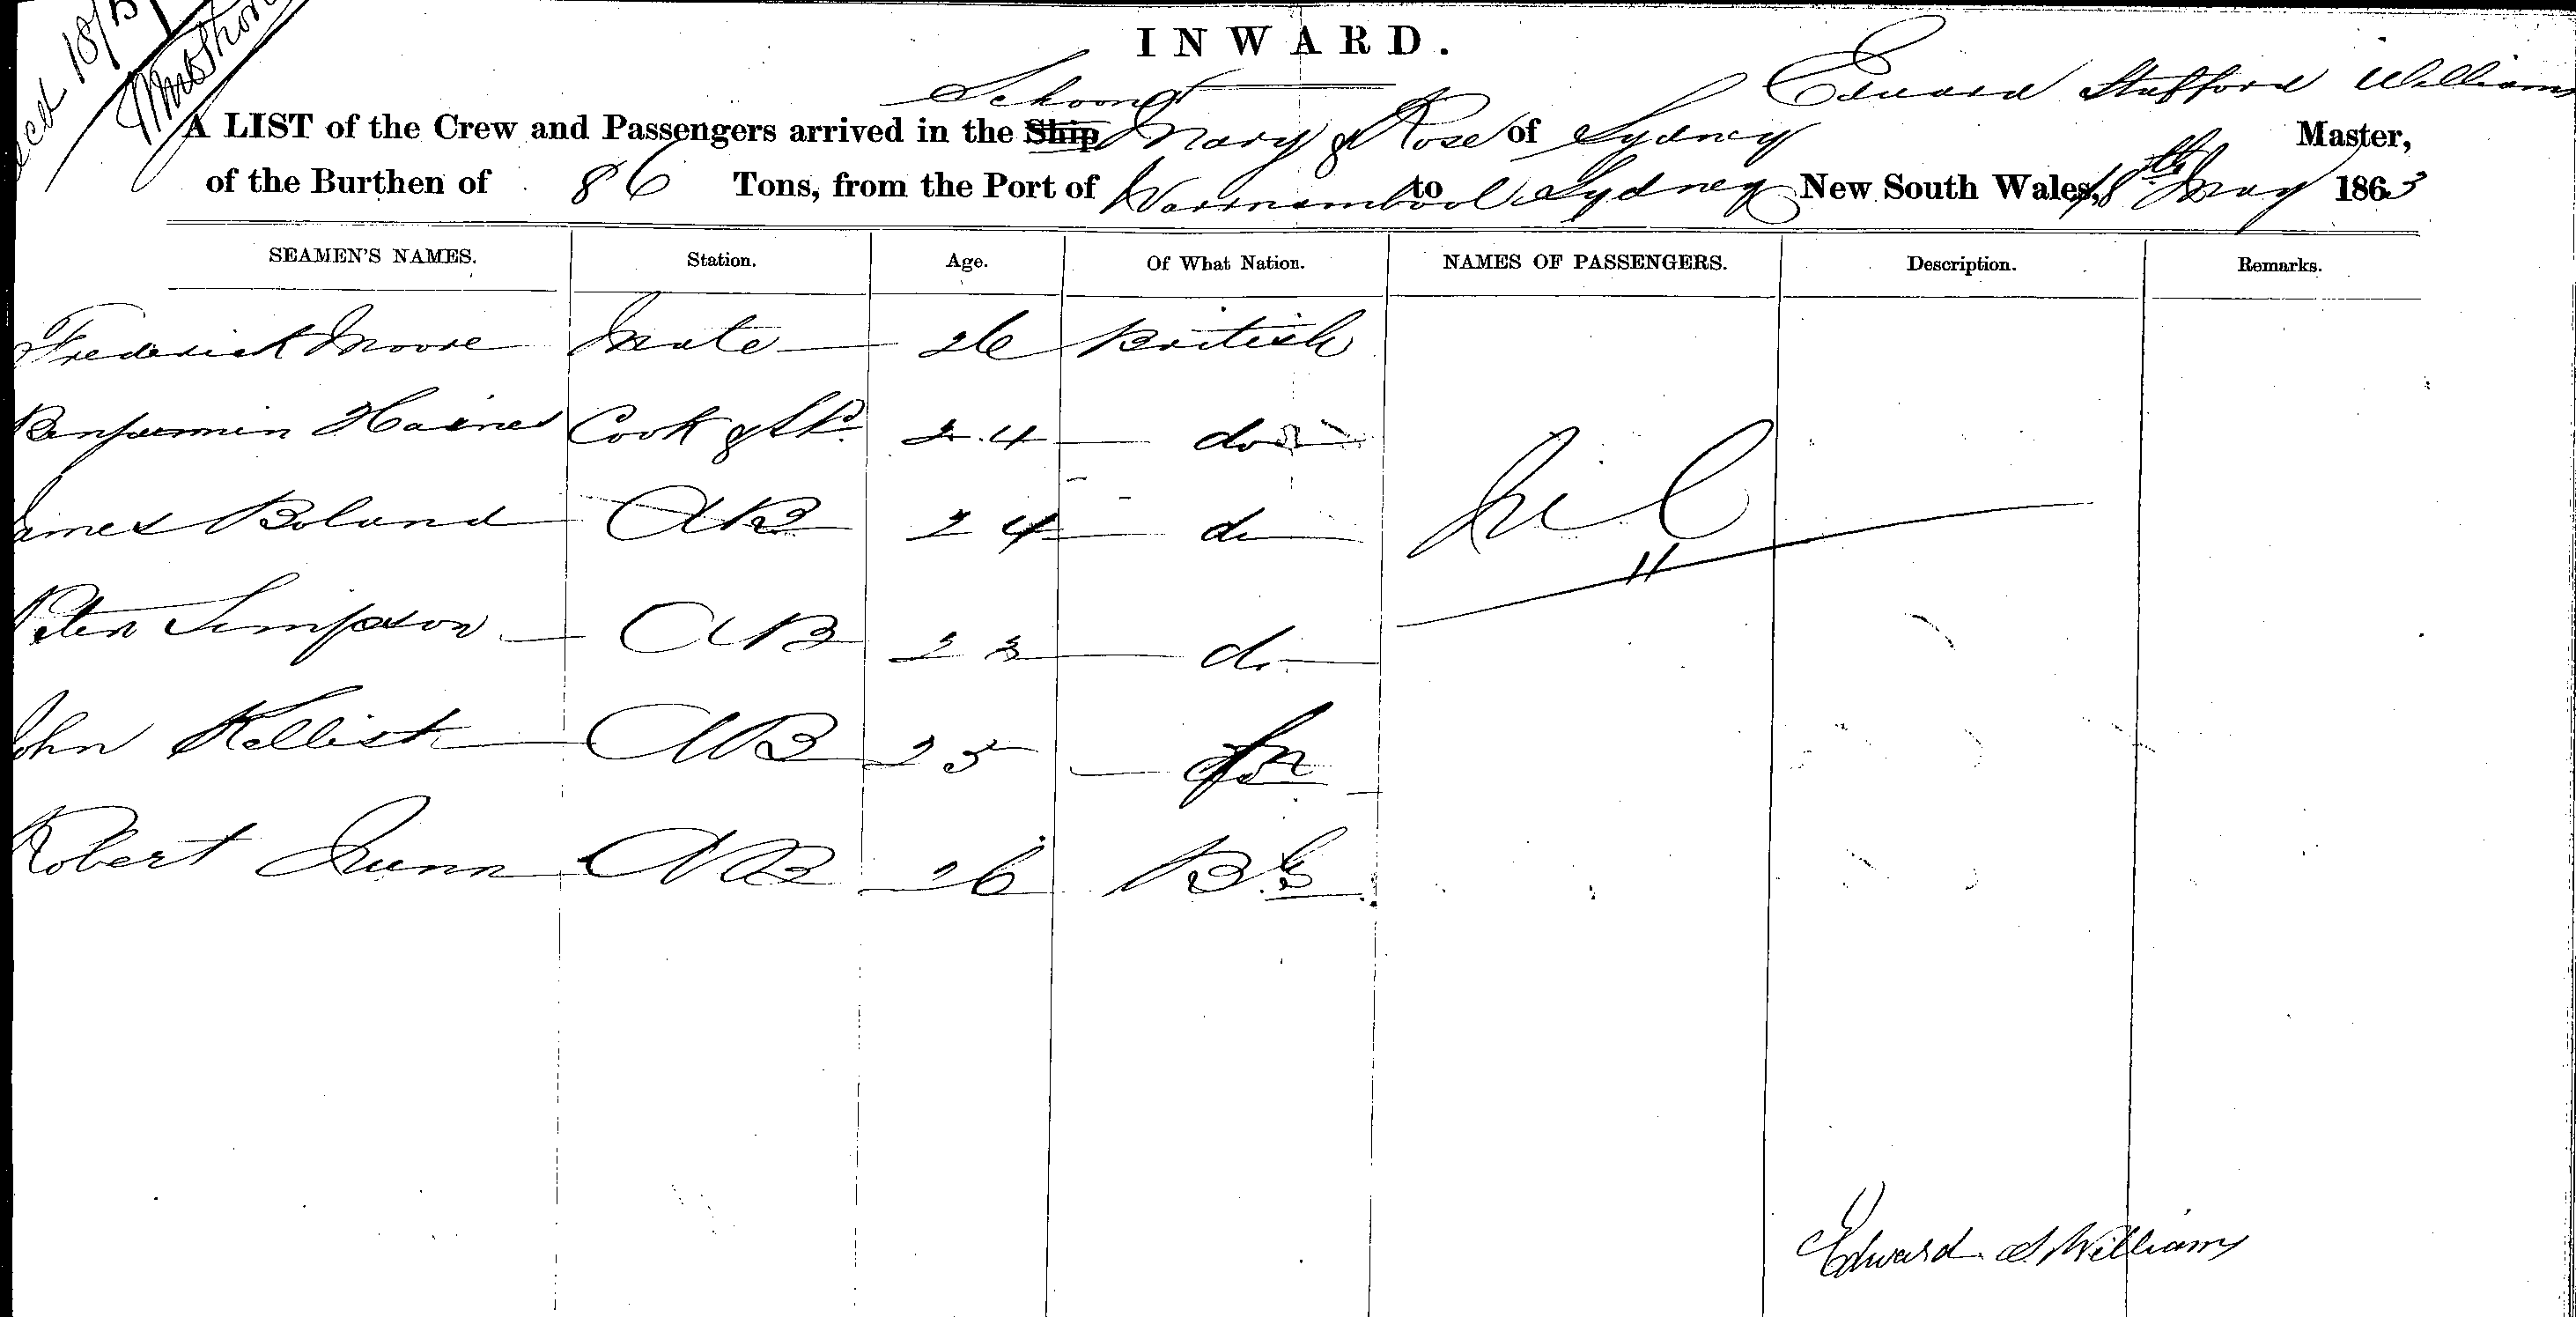 INWARD.
Schooner Edward Stafford Williams
A LIST of the Crew and Passengers arrived in the Ship Mary & Rose of Sydney Master,
of the Burthen of 86 Tons, from the Port of Warrnambool to Sydney New South Wales, 18th May 1863
SEAMEN'S NAMES. Station. Age. Of What Nation. NAMES OF PASSENGERS. Description. Remarks.
Frederick Moore Mate 26 British
Benjamin Haines Cook & 24 do
James Boland AB 24 do Nil
Peter Simpson AB 23 do
John Kellish AB 25
Robert Nunn AB 26
Edward S Williams